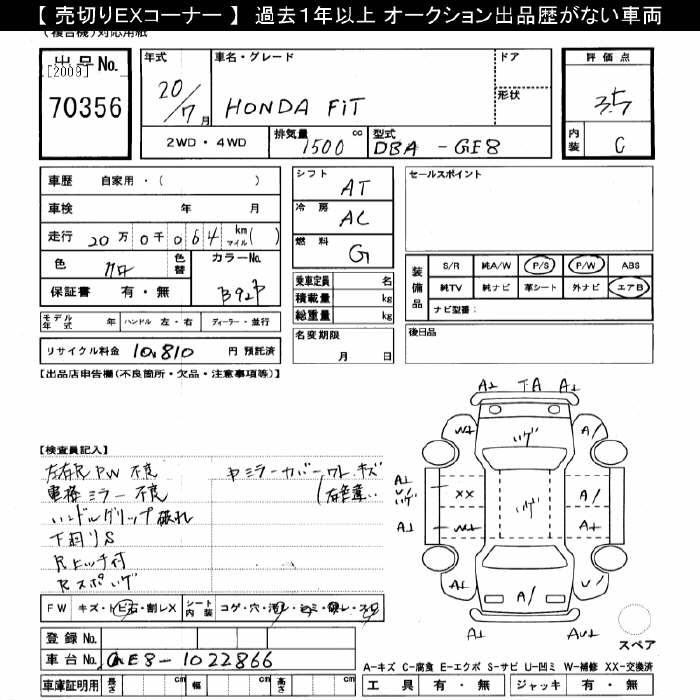 【 売切りEXコーナー 】 過去1年以上 オークション出品歴がない車両
(複合機)対応用紙
出品No.
[2009]
70356
年式 20/7月
車名・グレード
HONDA FiT
ドア
形状
評価点
3.5
内装 C
2WD・4WD
排気量 1500 cc
型式 DBA -GE8
車歴 自家用・( )
車検 年 月
走行 20万0千064 km マイル( )
色 クロ
色替
カラーNo. B92P
保証書 有・無
モデル年式 年 ハンドル 左・右 ディーラー・並行
リサイクル料金 10,810 円 預託済
シフト AT
冷房 AC
燃料 G
乗車定員 名
積載量 kg
総重量 kg
名変期限
月 日
セールスポイント
装備品
S/R 純A/W P/S P/W ABS
純TV 純ナビ 革シート 外ナビ エアB
ナビ型番:
後日品
【出品店申告欄(不良箇所・欠品・注意事項等)】
【検査員記入】
左右R PW 不良
車格ミラー不良
ハンドルグリップ破れ
下回りS
Rヒッチ付
Rスポイゲ
中ミラーカバーワレ、キズ
FW キズ・トビ石・割レX
シート内装 コゲ・穴・汚レ・シミ・破レ・スレ
登録No.
車台No. GE8-1022866
車庫証明用 長さ cm 幅 cm 高さ cm
A⊥ TA A⊥
W⊥ イゲ A/
A⊥
U/
A⊥
XX
イゲ
A/
W⊥
A⊥
A⊥ A/ U/
A⊥ AU⊥
スペア
A-キズ C-腐食 E-エクボ S-サビ U-凹ミ W-補修 XX-交換済
工具 有・無 ジャッキ 有・無